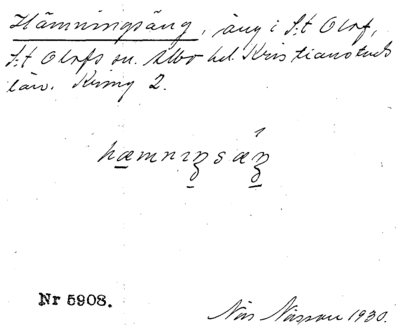 Hämningsäng, äng i S:t Olof,
S:t Olofs sn. Albo hd. Kristianstads
län. Kring 2.
hæmnɪŋsǽŋ
Nr 5908.
Nils 1930.